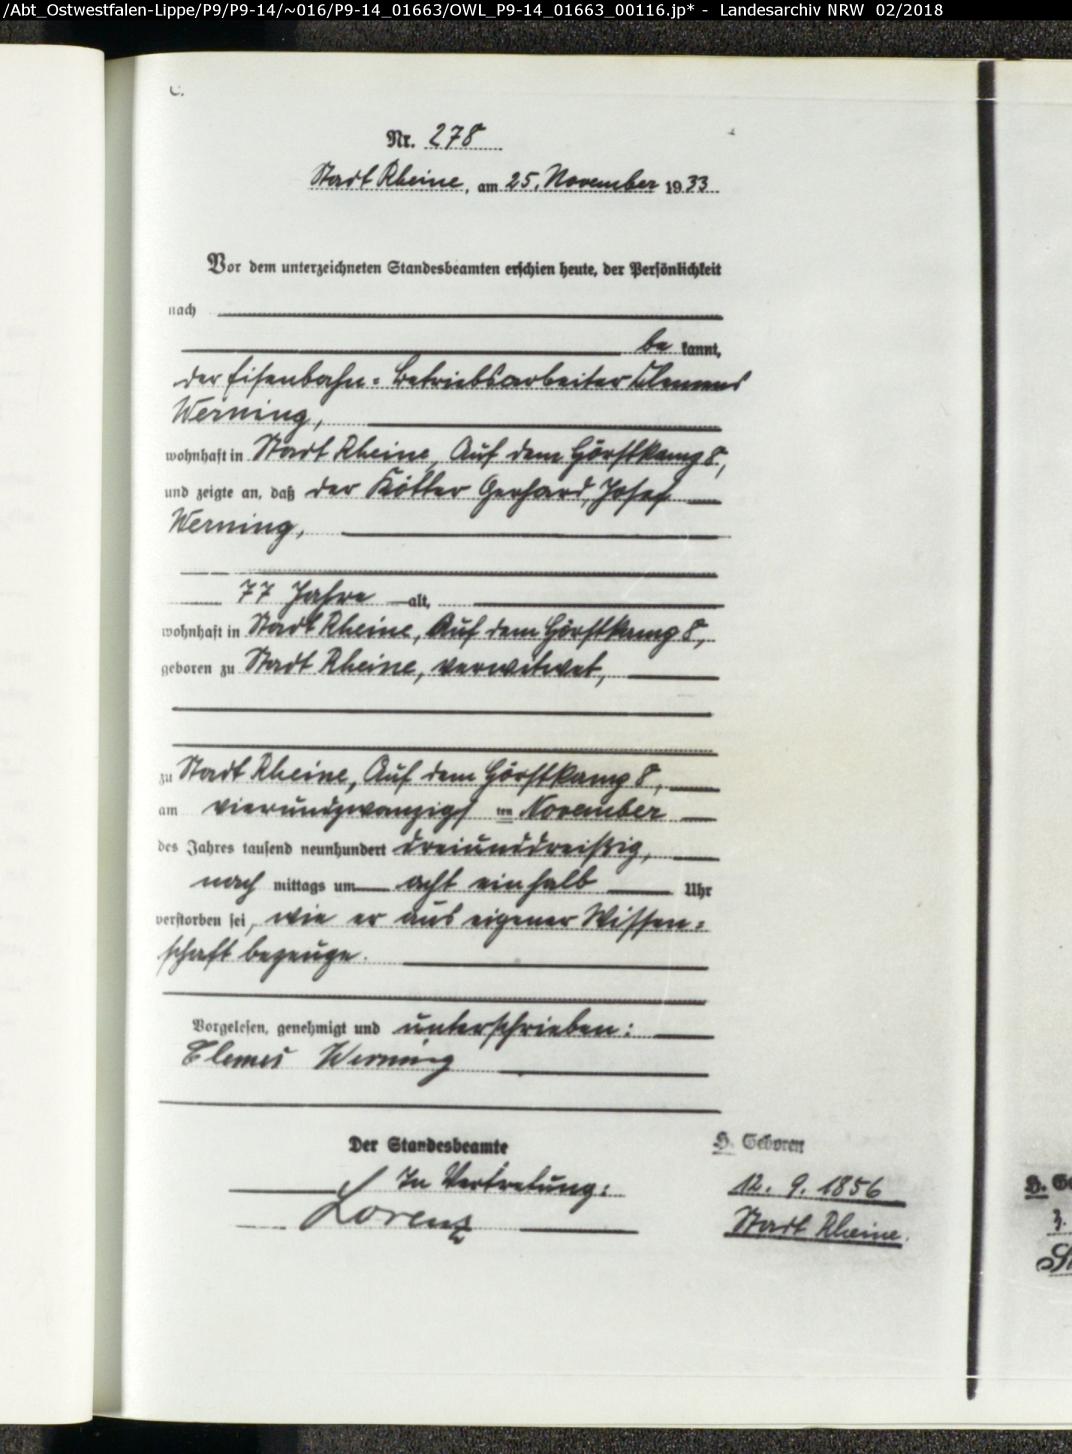 /Abt_Ostwestfalen-Lippe/P9/P9-14/~016/P9-14_01663/OWL_P9-14_01663_00116.jp* - Landesarchiv NRW 02/2018
C.
Nr. 278
Stadt Rheine, am 25. November 1933
Vor dem unterzeichneten Standesbeamten erschien heute, der Persönlichkeit
nach
be kannt,
der Eisenbahn-Betriebsarbeiter Clemens
Werning,
wohnhaft in Stadt Rheine, Auf dem Hörstkamp 8,
und zeigte an, daß der Kötter Gerhard, Josef
Werning,
77 Jahre alt,
wohnhaft in Stadt Rheine, Auf dem Hörstkamp 8,
geboren zu Stadt Rheine, verwitwet,
zu Stadt Rheine, Auf dem Hörstkamp 8,
am vierundzwanzigsten November
des Jahres tausend neunhundert dreiunddreißig,
nach mittags um acht einhalb Uhr
verstorben sei, wie er aus eigener Wissen-
schaft bezeuge.
Vorgelesen, genehmigt und unterschrieben:
Clemes Werning
Der Standesbeamte
In Vertretung:
Lorenz
H. Geboren
12. 9. 1856
Stadt Rheine.